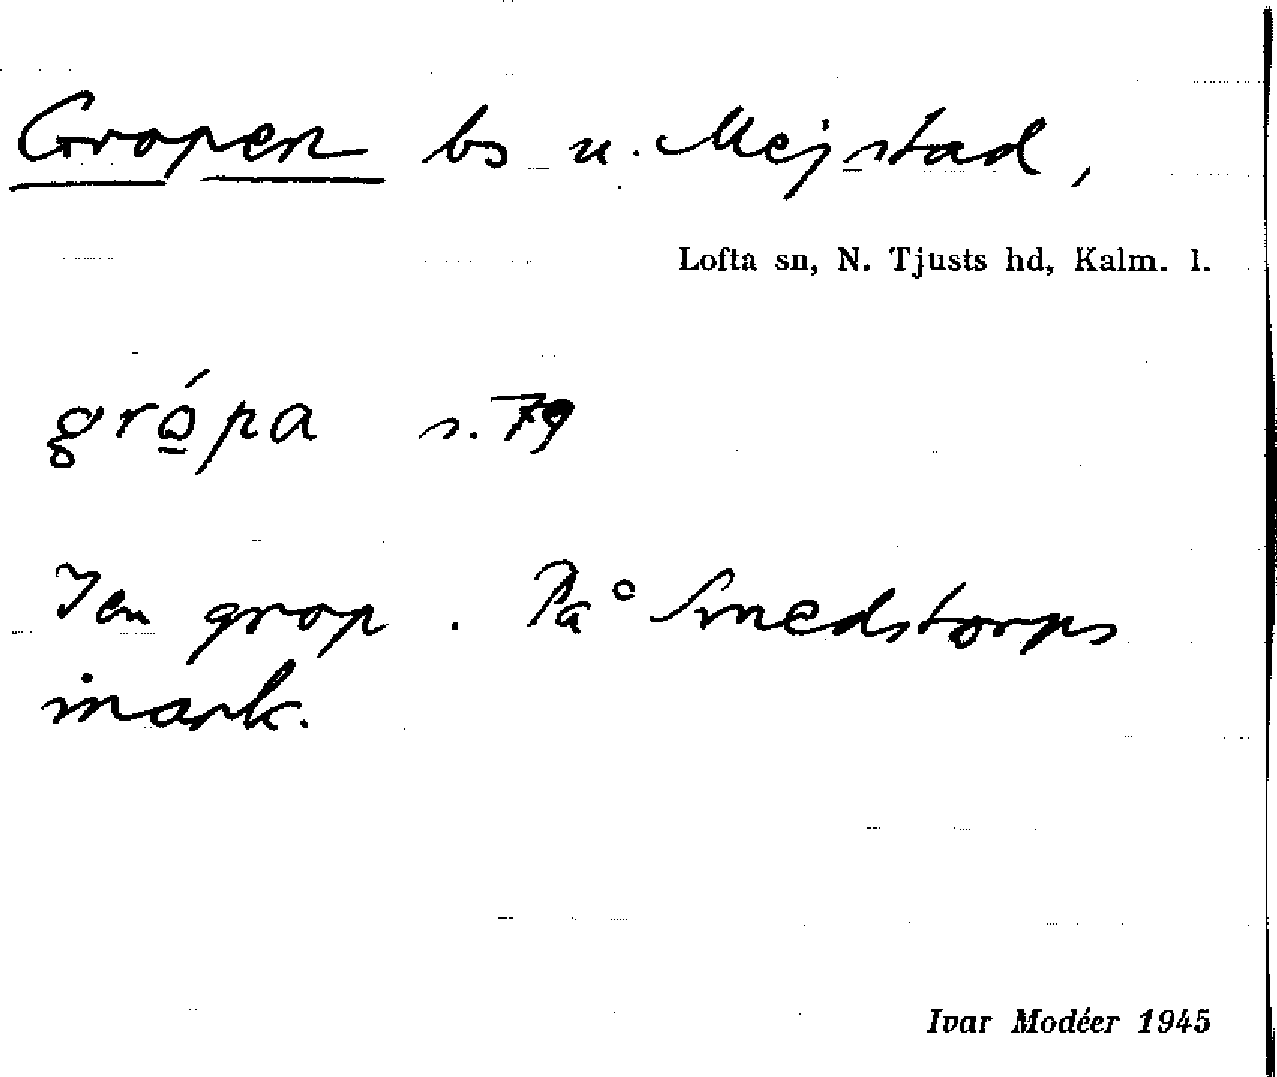 Gropen bs u. Mejstad,
Lofta sn, N. Tjusts hd, Kalm. l.
grǫ́pa s. 79
I en grop. På Smedstorps
mark.
Ivar Modéer 1945